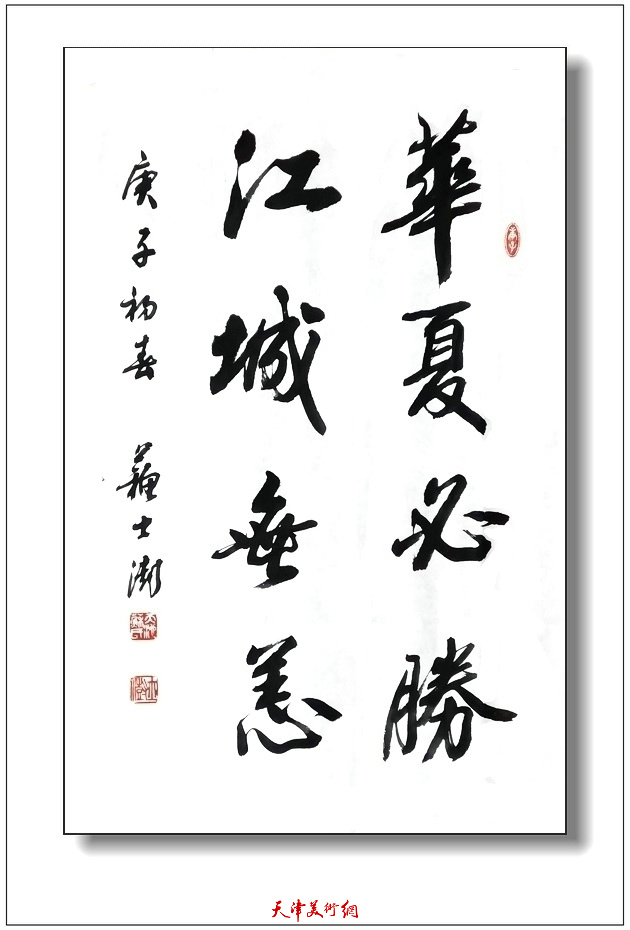 華夏必勝
江城無恙
庚子初春 蘇士澍
天津美術網